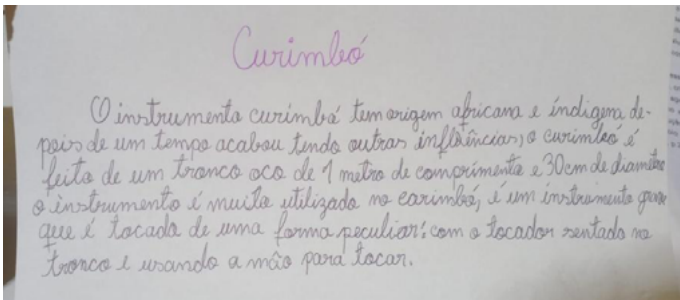 Curimbó
O instrumento curimbó tem origem africana e indígena de-
pois de um tempo acabou tendo outras influências, o curimbó é
feito de um tronco oco de 1 metro de comprimento e 30cm de diametro
o instrumento é muito utilizado no carimbó, é um instrumento grave
que é tocado de uma forma peculiar: com o tocador sentado no
tronco e usando a mão para tocar.